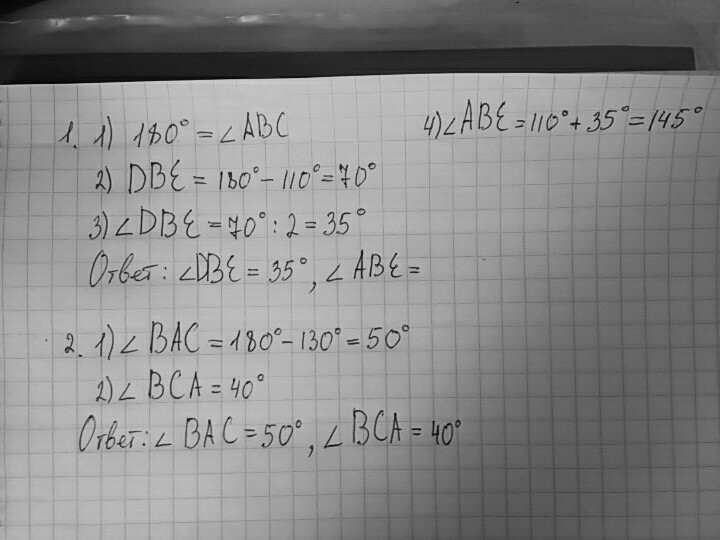 1. 1) 180° = ∠ABC
2) DBE = 180° - 110° = 70°
3) ∠DBE = 70° : 2 = 35°
4) ∠ABE = 110° + 35° = 145°
Ответ: ∠DBE = 35°, ∠ABE =
2. 1) ∠BAC = 180° - 130° = 50°
2) ∠BCA = 40°
Ответ: ∠BAC = 50°, ∠BCA = 40°